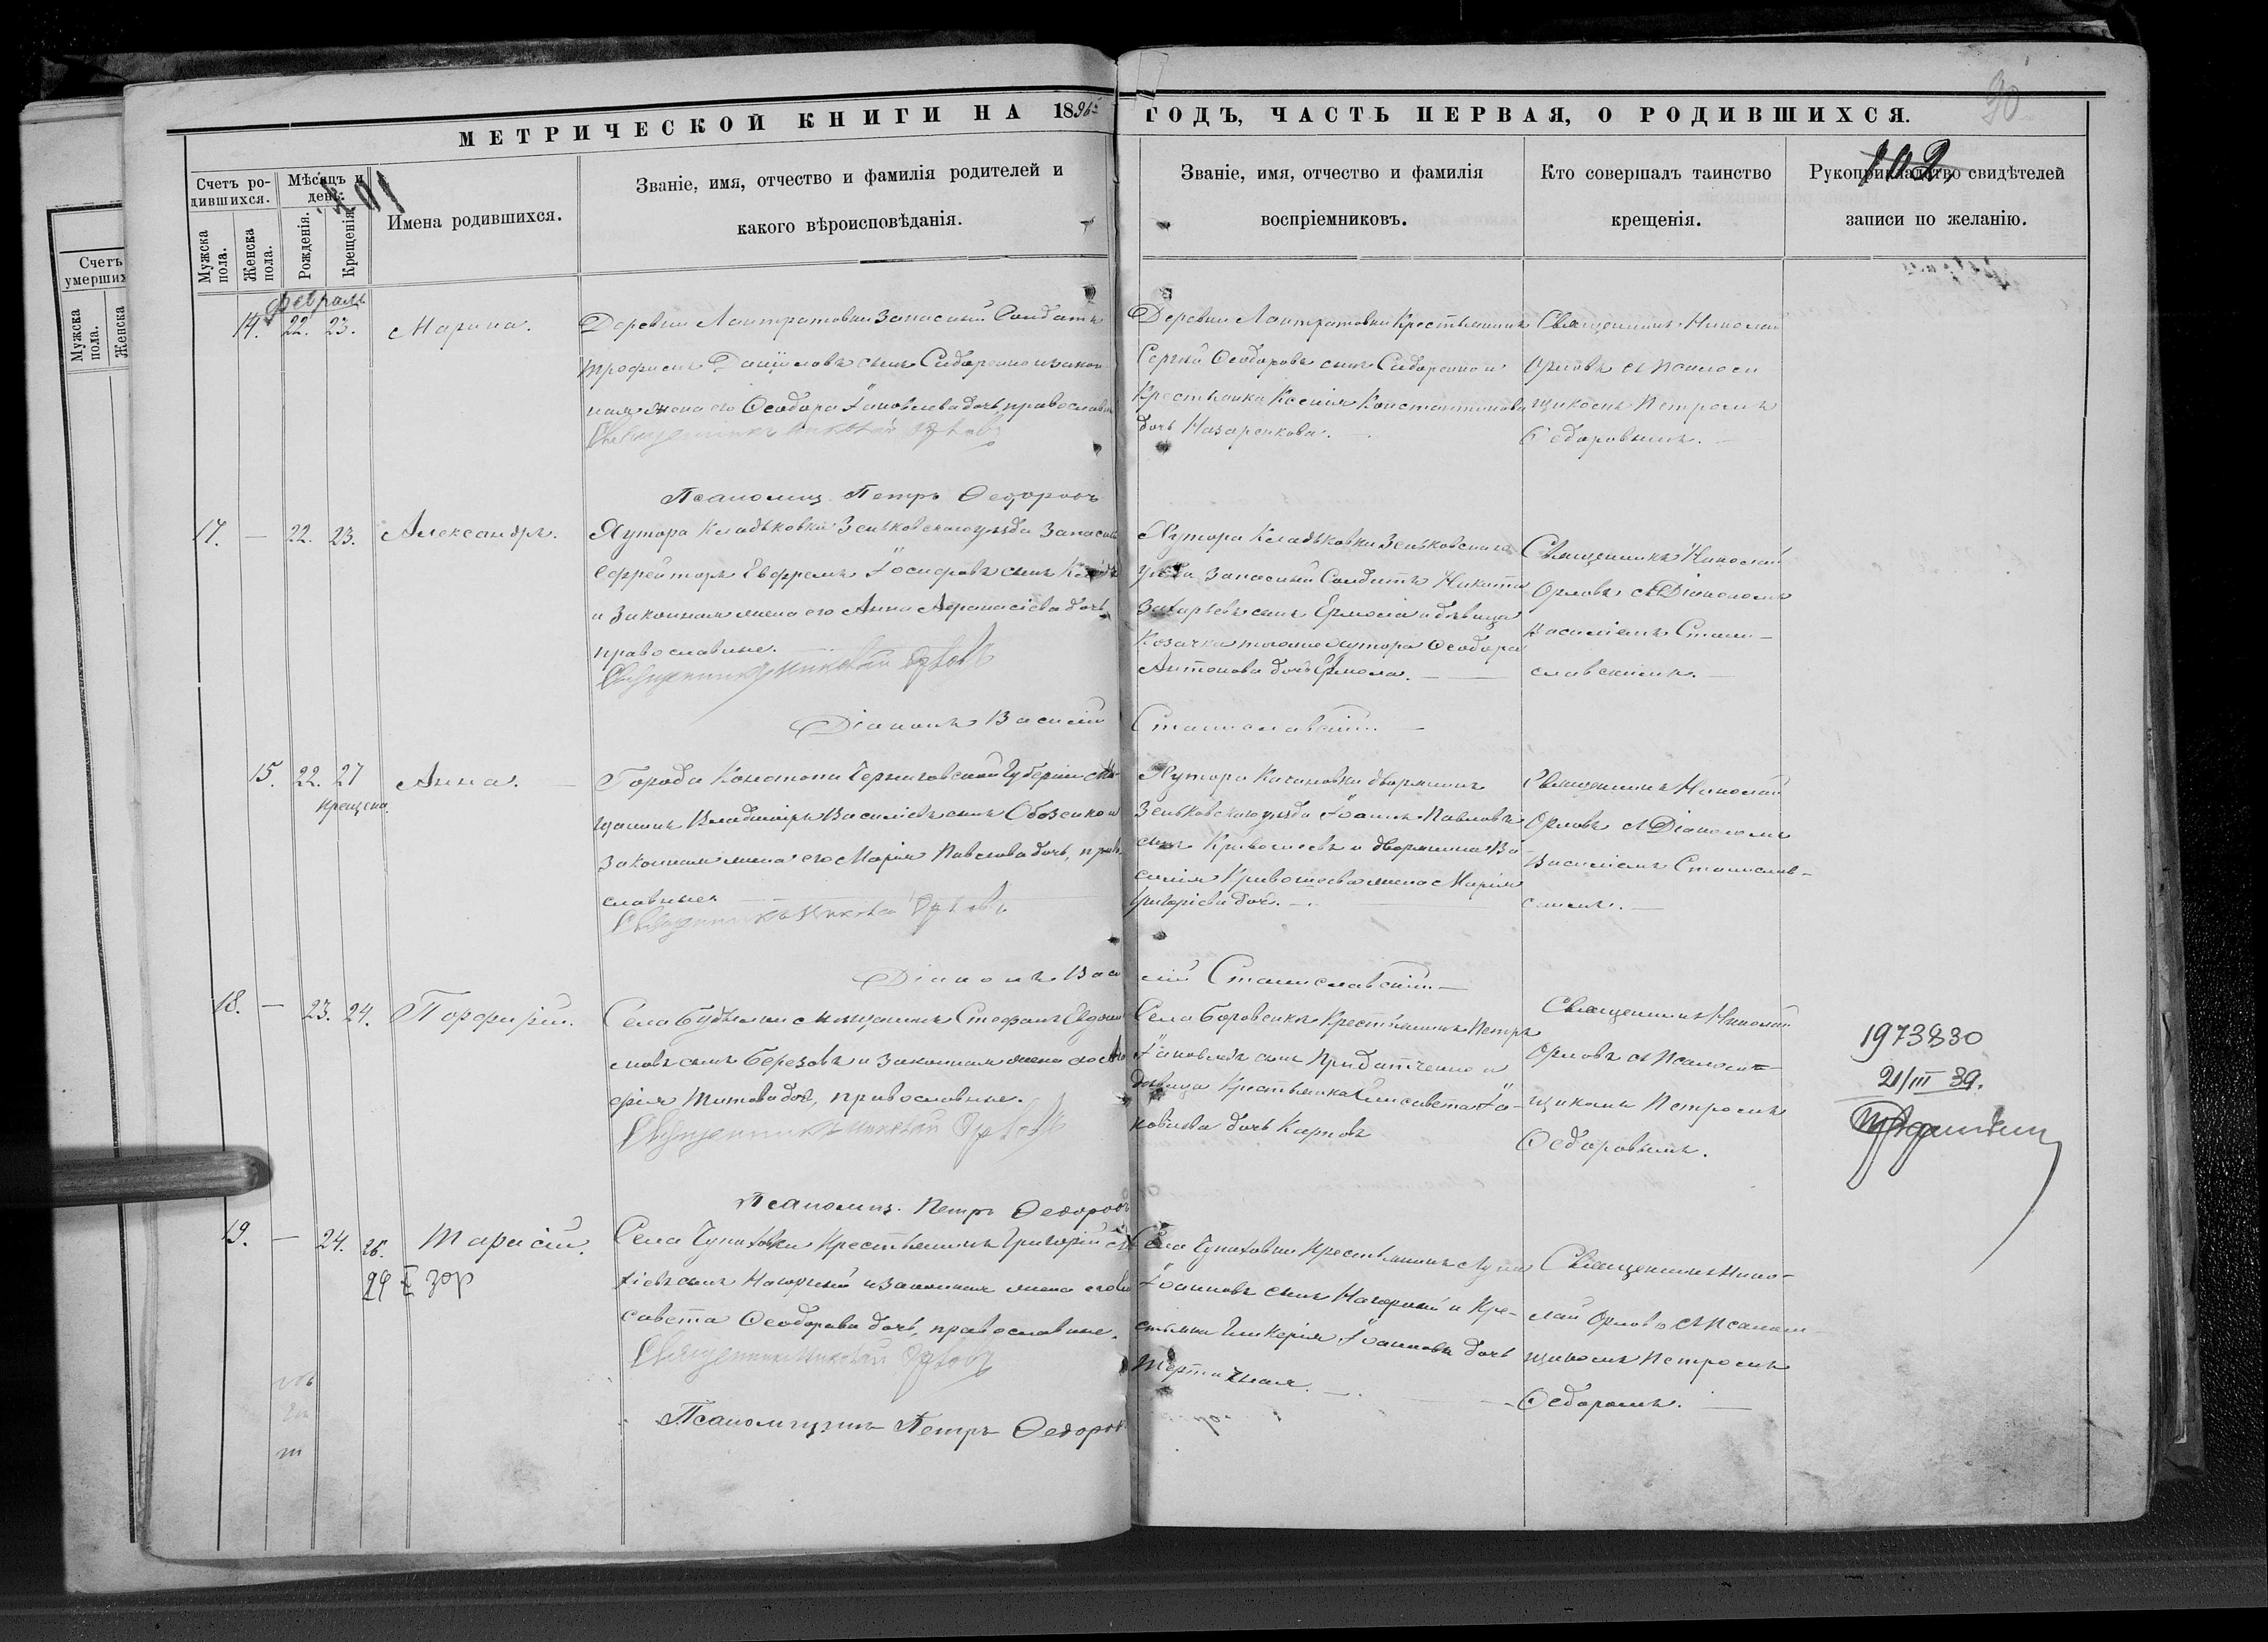 МЕТРИЧЕСКОЙ КНИГИ НА 1896
ГОДЪ, ЧАСТЬ ПЕРВАЯ, О РОДИВШИХСЯ.
90
101
102
Счетъ умершихъ
Мужска пола.
Женска
Счетъ родившихся.
Мужска пола.
Женска пола.
Мѣсяцъ и день.
Рожденія.
Крещенія.
Имена родившихся.
Званіе, имя, отчество и фамилія родителей и
какого вѣроисповѣданія.
Званіе, имя, отчество и фамилія
воспріемниковъ.
Кто совершалъ таинство
крещенія.
Рукоприкладство свидѣтелей
записи по желанію.
Февраль
14. 22. 23. Марина.
Деревни Лантратовки запасный Солдатъ
Трофимъ Даніиловъ сынъ Сидоренко и закон
ная жена его Ѳеодора Іаковлева дочь, православн
Священникъ Николай Орловъ
Псаломщ. Петръ Ѳедоровъ
Деревни Лантратовки Крестьянинъ
Сергій Ѳеодоровъ сынъ Сидоренко и
Крестьянка Ксенія Константинова
дочь Назаренкова.
Священникъ Николай
Орловъ съ Псалом
щикомъ Петромъ
Ѳедоровымъ.
17. — 22. 23. Александръ.
Хутора Кладьковки Зеньковского уѣзда Запасный
Ефрейторъ Евфремъ Іосифовъ сынъ
и Законная жена его Анна Аѳанасіева дочь
православные.
Священникъ Николай Орловъ
Діаконъ Василій
Станиславскій.
Хутора Кладьковки Зеньковского
уѣзда Запасный Солдатъ Никита
Захарьевъ сынъ Ермола и дѣвица
Козачка того же хутора Ѳеодора
Антонова дочь Ермола.
Священникъ Николай
Орловъ съ Діакономъ
Василіемъ Стани-
славскимъ.
15. 22. 27 Анна.
крещена.
Города Конотопа Черниговской Губерніи мѣ-
щанинъ Владиміръ Василіевъ сынъ Обозенко и
Законная жена его Марія Павлова дочь, право-
славные.
Священникъ Николай Орловъ
Діаконъ Васи
лій Станиславскій.
Хутора Качановки дворянинъ
Зеньковского уѣзда Іоаннъ Павловъ
сынъ Кривошеевъ и дворянина Ва-
силія Кривошеева жена Марія
Григоріева дочь.
Священникъ Николай
Орловъ съ Діакономъ
Василіемъ Станислав-
скимъ.
18. — 23. 24. Порфирій.
Села мѣщанинъ Стефанъ Евдоки
мовъ сынъ Березовъ и Законная жена его
Титова дочь, православные.
Священникъ Николай Орловъ
Псаломщ. Петръ Ѳедоровъ
Села Боровенки Крестьянинъ Петръ
Іаковлевъ сынъ Придатченко и
дѣвица Крестьянка Елисавета Іа-
ковлева дочь Карповъ
Священникъ Николай
Орловъ съ Псалом-
щикомъ Петромъ
Ѳедоровымъ.
1973830
21/III 39.
19. — 24. 25. Тарасій.
29 I зор
Села Чупаховки Крестьянинъ Григорій
тіевъ сынъ Нагорный и законная жена его Ели
савета Ѳеодорова дочь, православные.
Священникъ Николай Орловъ
Псаломщикъ Петръ Ѳедоровъ
Села Чупаховки Крестьянинъ Лука
Іоанновъ сынъ Нагорный и Кре-
стьянка Гликерія Іоаннова дочь
Священникъ Нико-
лай Орловъ съ Псалом-
щикомъ Петромъ
Ѳедоромъ.